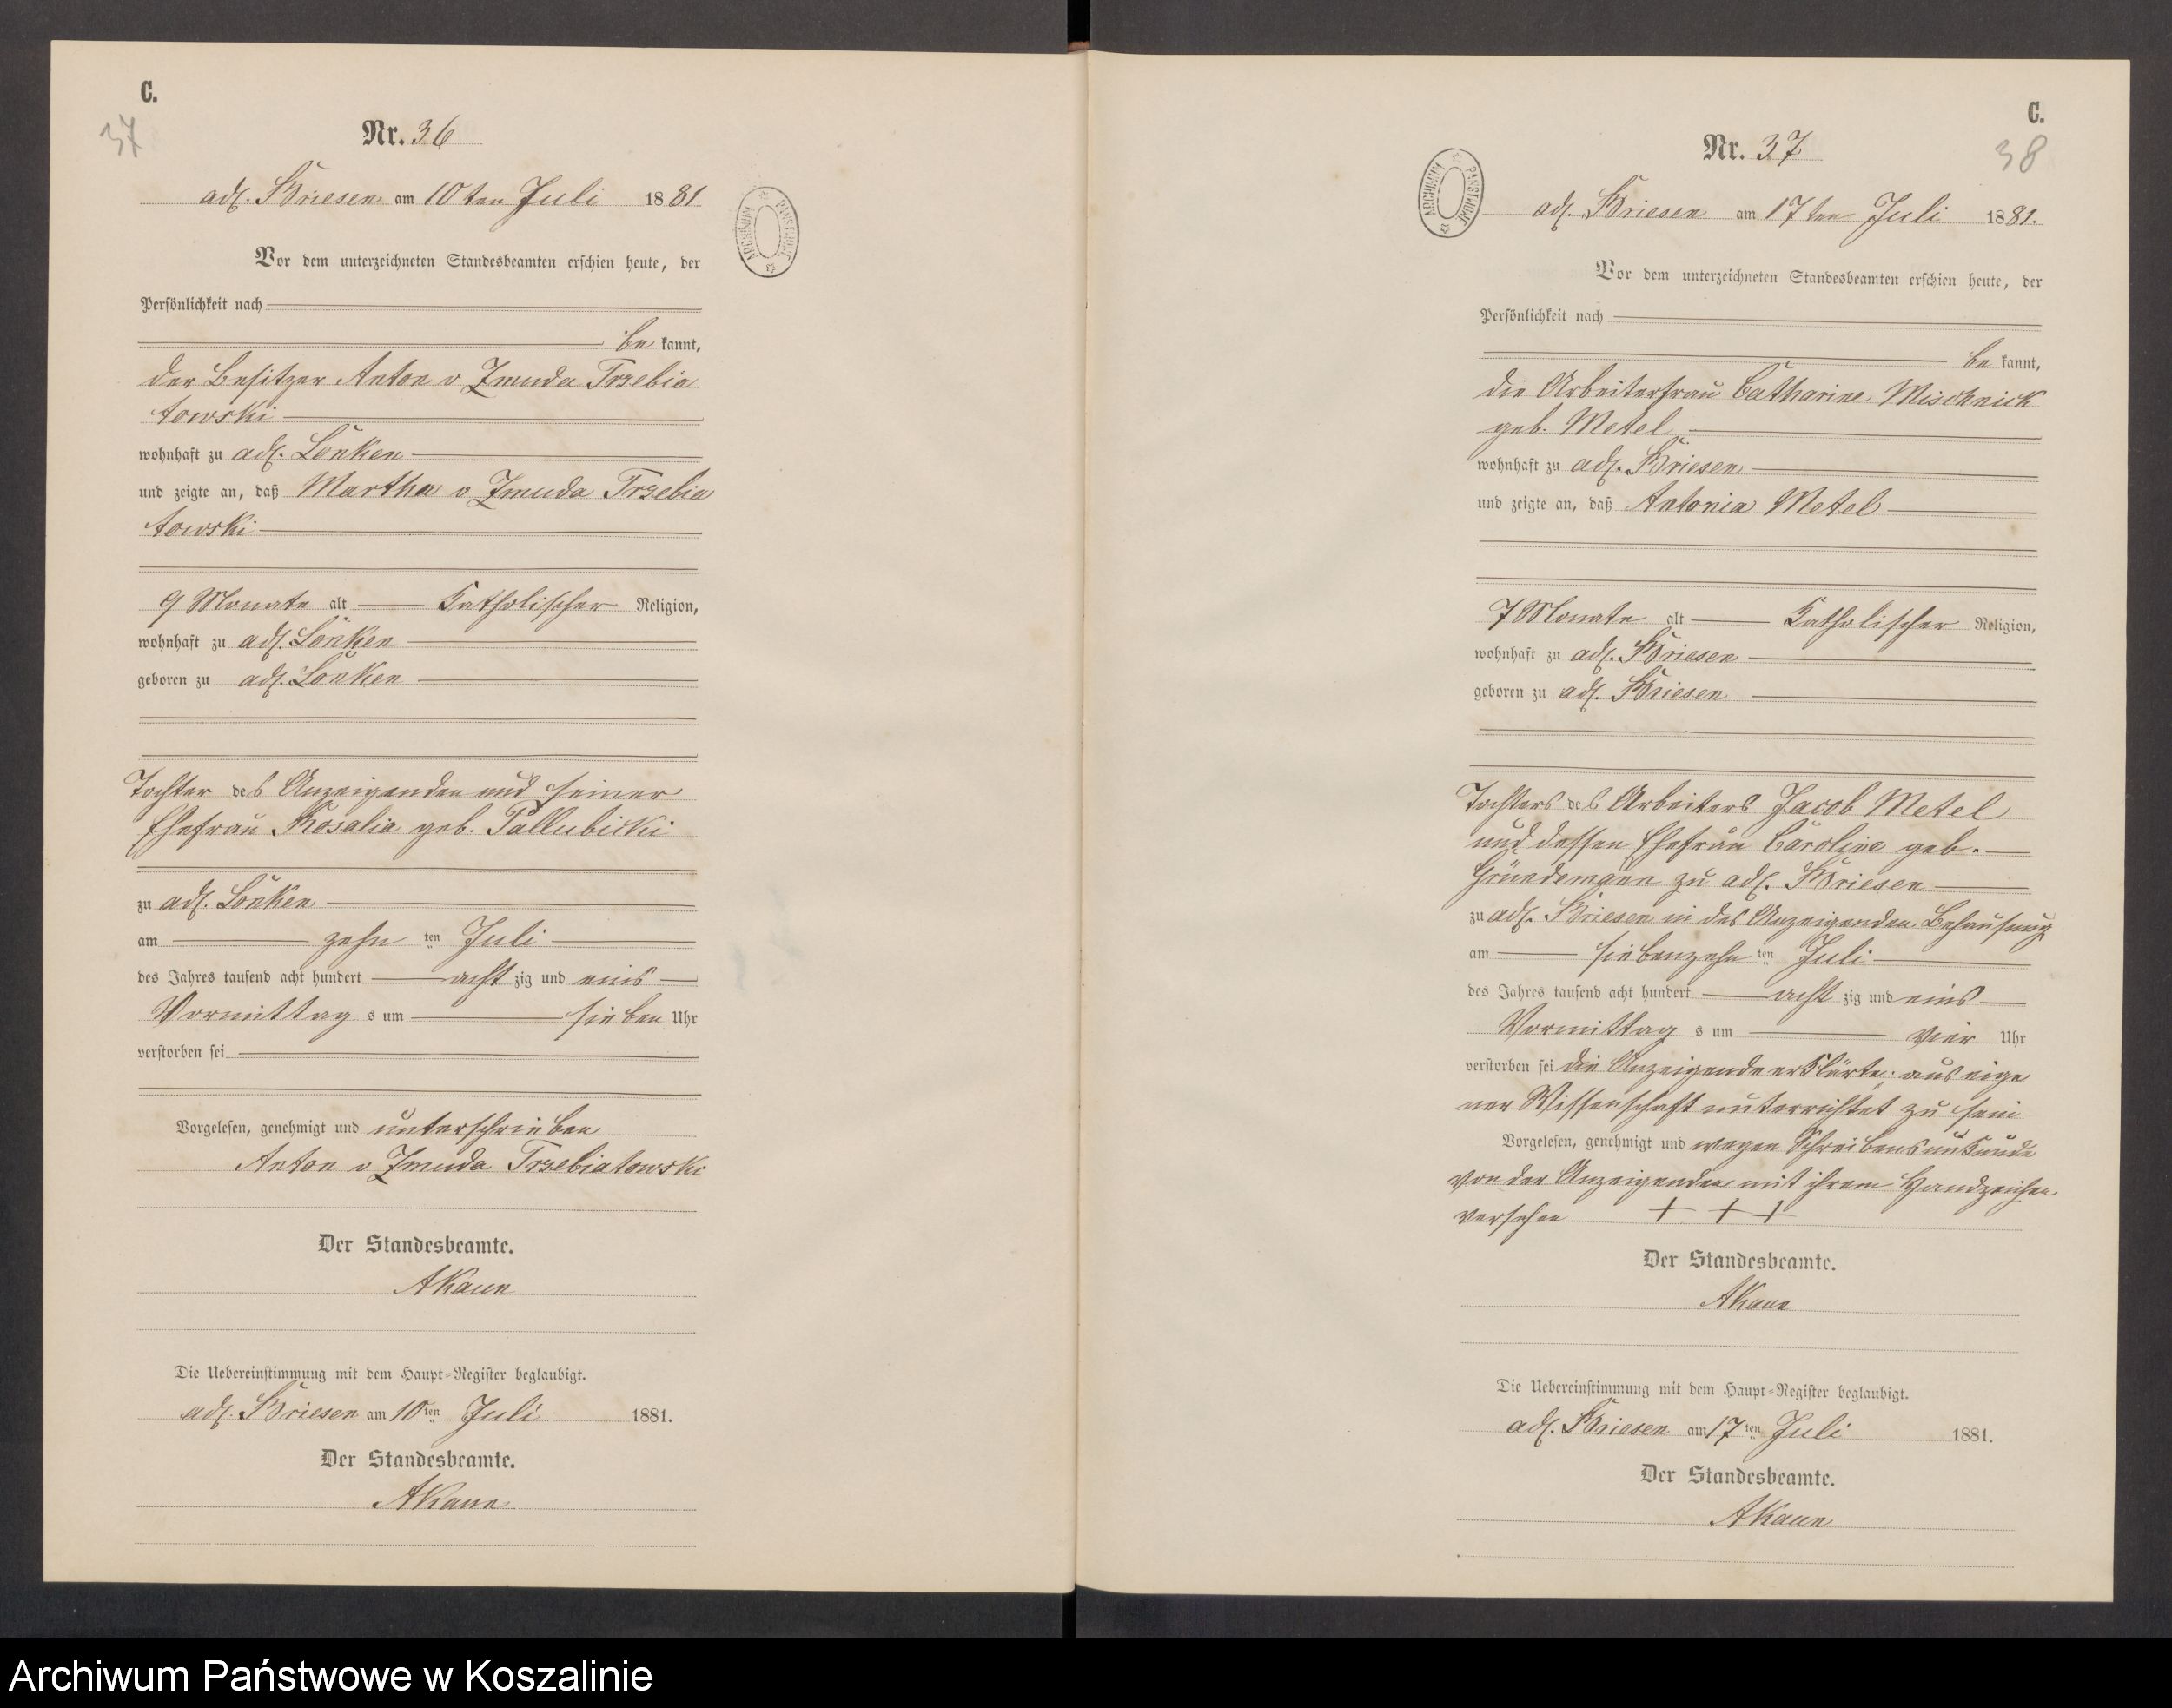 C.
37
Nr. 36
adl. Briesen am 10ten Juli 1881
Vor dem unterzeichneten Standesbeamten erschien heute, der
Persönlichkeit nach
be kannt,
der Besitzer Anton v Zmuda Trzebia
towski
wohnhaft zu adl. Lonken
und zeigte an, daß Martha v Zmuda Trzebia
towski
9 Monate alt Katholischer Religion,
wohnhaft zu adl. Lonken
geboren zu adl. Lonken
Tochter des Anzeigenden und seiner
Ehefrau Rosalia geb. Pallubicki
zu adl. Lonken
am zehn ten Juli
des Jahres tausend acht hundert acht zig und eins
Vormittag s um sieben Uhr
verstorben sei
Vorgelesen, genehmigt und unterschrieben
Anton v Zmuda Trzebiatowski
Der Standesbeamte.
AKaun
Die Uebereinstimmung mit dem Haupt-Register beglaubigt.
adl. Briesen am 10ten Juli 1881.
Der Standesbeamte.
AKaun
ARCHIWUM PAŃSTWOWE
C.
38
Nr. 37
adl. Briesen am 17ten Juli 1881.
Vor dem unterzeichneten Standesbeamten erschien heute, der
Persönlichkeit nach
be kannt,
die Arbeiterfrau Catharine Mischnick
geb. Metel
wohnhaft zu adl. Briesen
und zeigte an, daß Antonia Metel
7 Monate alt Katholischer Religion,
wohnhaft zu adl. Briesen
geboren zu adl. Briesen
Tochters des Arbeiters Jacob Metel
und dessen Ehefrau Caroline geb.
Gründemann zu adl. Briesen
zu adl. Briesen in des Anzeigenden Behausung
am siebenzehn ten Juli
des Jahres tausend acht hundert acht zig und eins
Vormittag s um vier Uhr
verstorben sei die Anzeigende erklärte; aus eige
ner Wissenschaft unterrichtet zu sein
Vorgelesen, genehmigt und wegen Schreibensunkunde
von der Anzeigenden mit ihrem Handzeichen
versehen + + +
Der Standesbeamte.
AKaun
Die Uebereinstimmung mit dem Haupt-Register beglaubigt.
adl. Briesen am 17ten Juli 1881.
Der Standesbeamte.
AKaun
ARCHIWUM PAŃSTWOWE
Archiwum Państwowe w Koszalinie